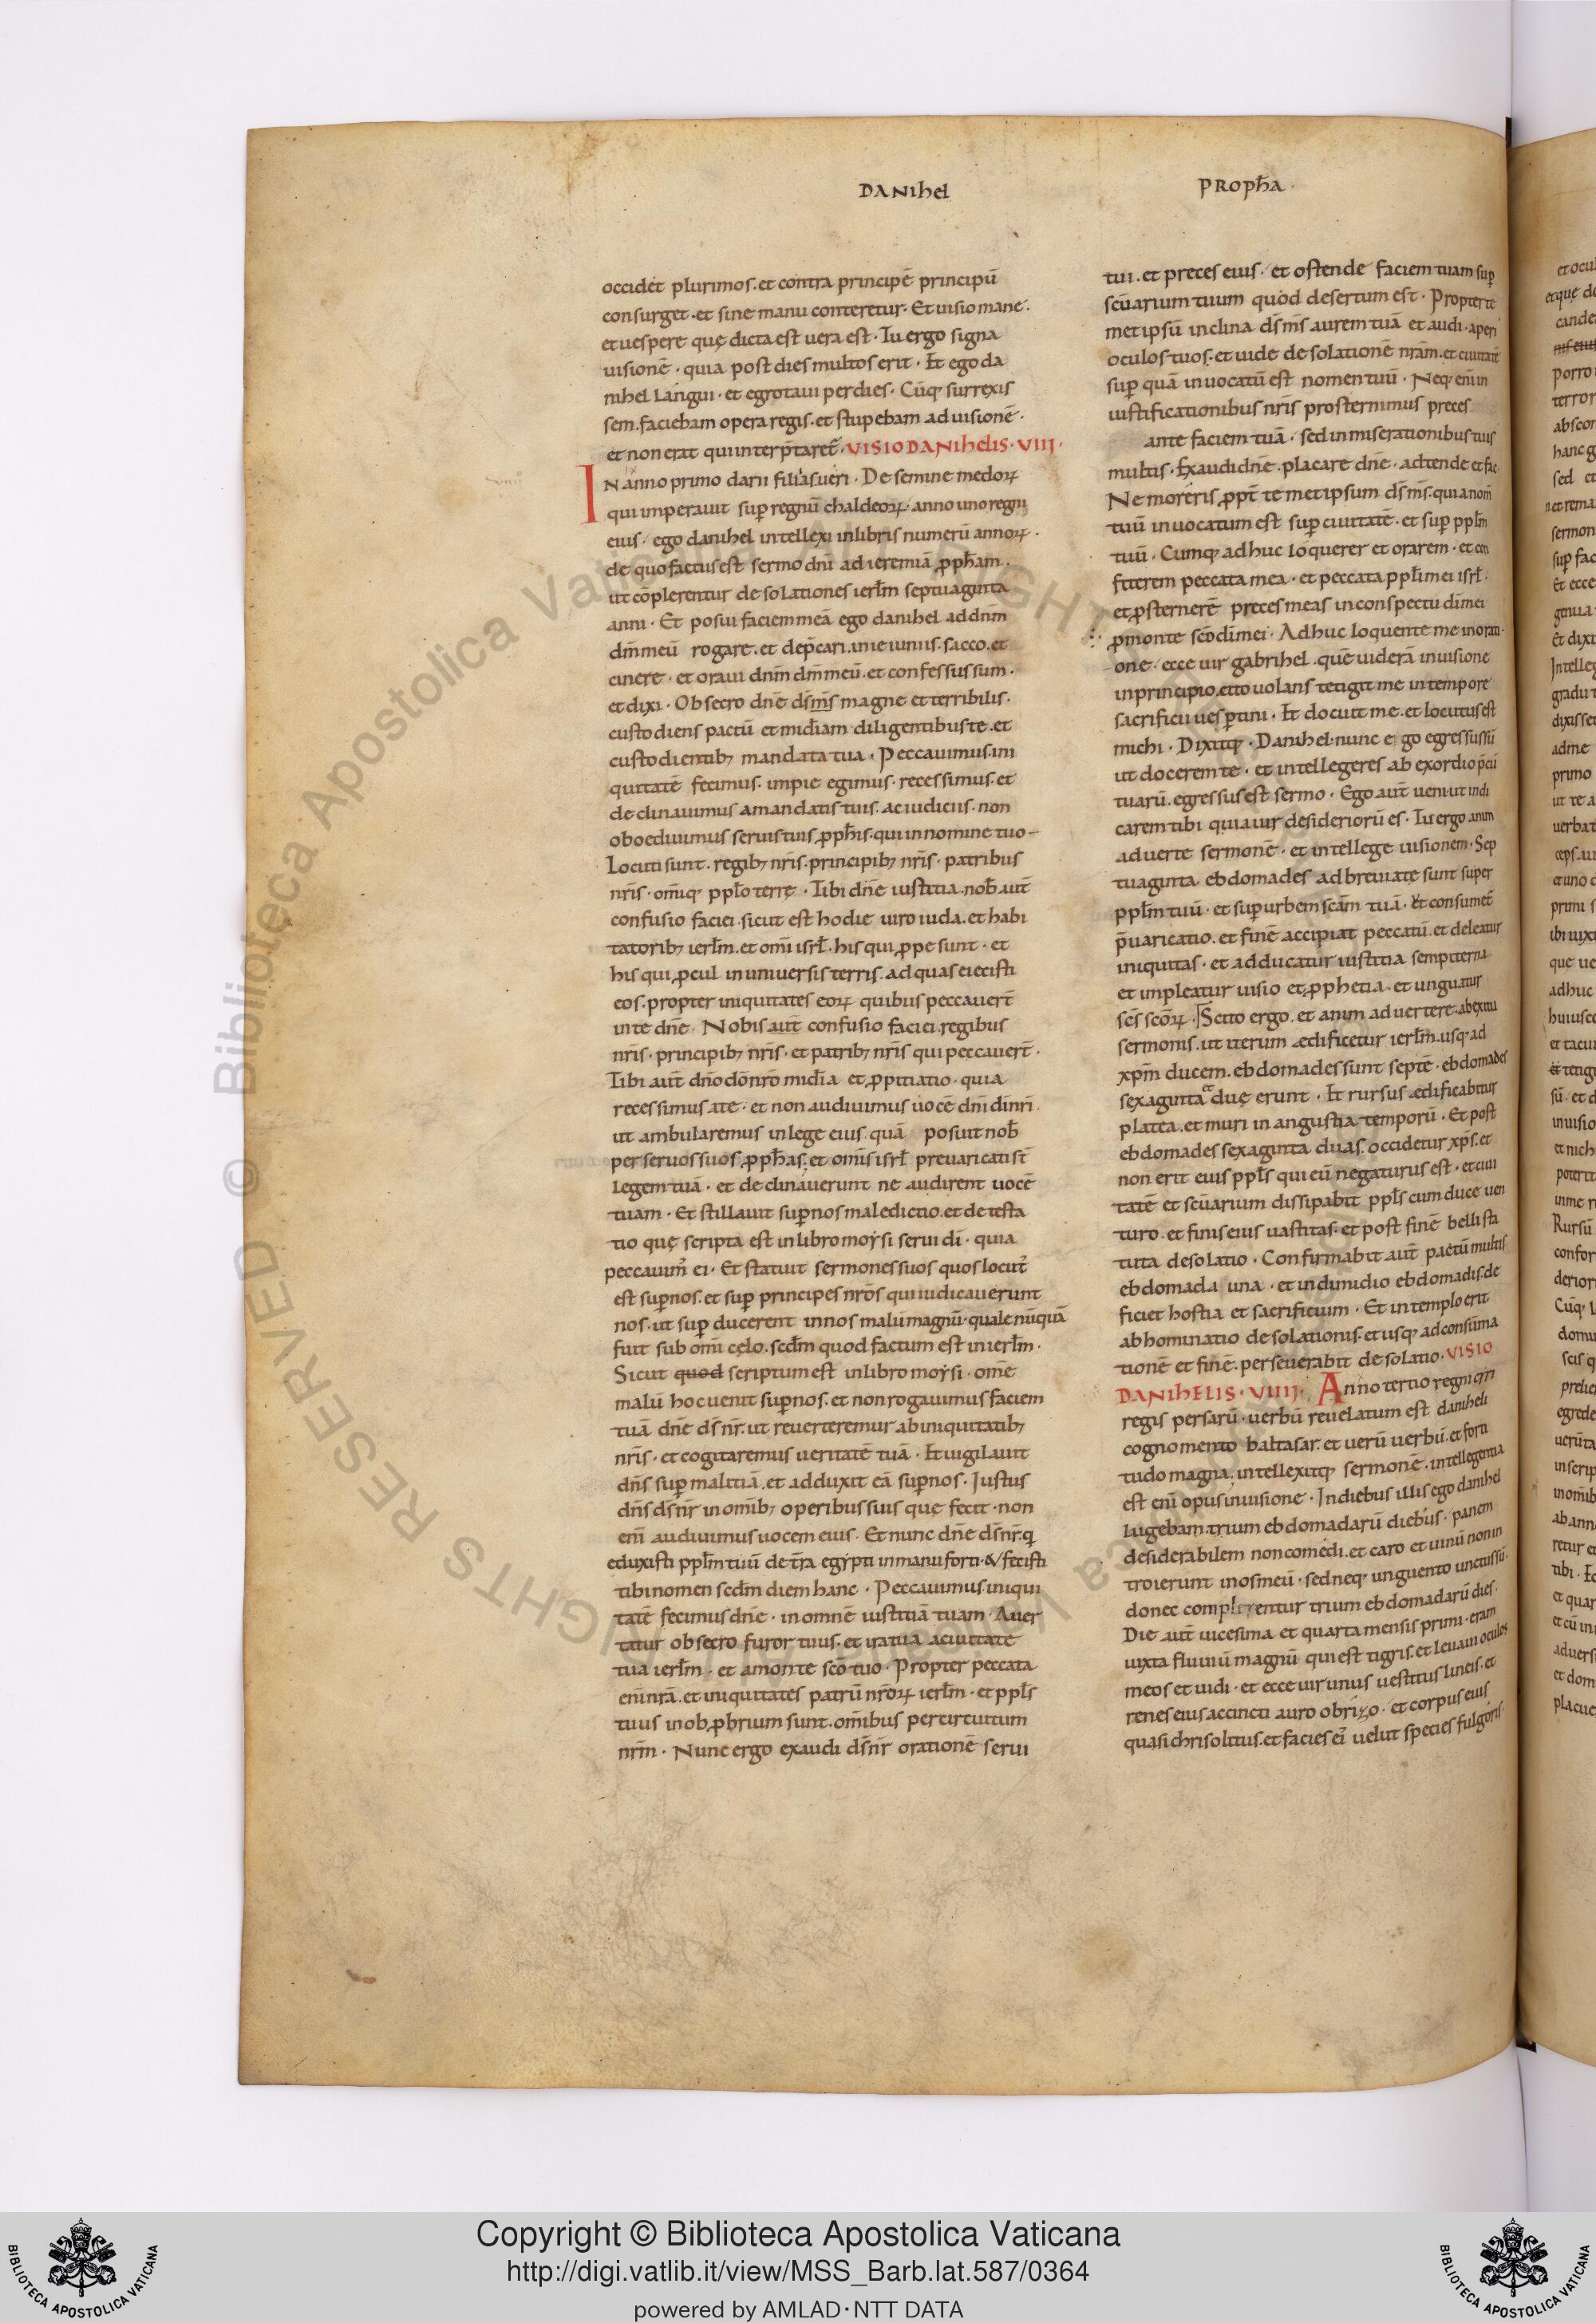 DANIhel
PROPħA·
occidet plurimos. et contra principē principū
consurget. et sine manu conteretur· Et uisio mane·
et uespere quę dicta est uera est· Tu ergo signa
uisionē· quia post dies multos erit· Et ego da
nihel langui· et egrotaui per dies· Cūq; surrexis
sem. faciebam opera regis. et stupebam ad uisionē·
et non erat qui interp̄taret̄· VISIO DANIhELIS· VIII·
IN anno primo darii filii asueri· De semine medoꝝ
qui imperauit suꝑ regnū chaldeoꝝ· anno uno regni
eius· ego danihel intellexi in libris numerū annoꝝ·
de quo factus est sermo dn̄i ad ieremiā ꝓpħam·
ut cōplerentur desolationes ierl̄m septuaginta
anni· Et posui faciem meā ego danihel ad dn̄m
dm̄ meū rogare. et dep̄cari. in ieiuniis. sacco. et
cinere· et oraui dn̄m dm̄ meū. et confessus sum·
et dixi· Obsecro dn̄e ds̄ ms̄ magne et terribilis·
custodiens pactū et mīdiam diligentibus te. et
custodientib; mandata tua· Peccauimus. ini
quitatē fecimus. impie egimus· recessimus. et
declinauimus a mandatis tuis. ac iudiciis· non
oboediuimus seruis tuis ꝓpħis. qui in nomine tuo
Locuti sunt. regib; nr̄is. principib; nr̄is· patribus
nr̄is· om̄iq; ppl̄o terrę· Tibi dn̄e iustitia. nob̄ aut̄
confusio faciei. sicut est hodie uiro iuda. et habi
tatorib; ierl̄m. et om̄i isrl̄. his qui ꝓpe sunt· et
his qui ꝓcul in uniuersis terris. ad quas eiecisti
eos. propter iniquitates eoꝝ quibus peccauer̄t
in te dn̄e· Nobis aut̄ confusio faciei. regibus
nr̄is· principib; nr̄is· et patrib; nr̄is qui peccauer̄t·
Tibi aut̄ dn̄o dō nr̄o mīdia et ꝓpitiatio· quia
recessimus a te· et non audiuimus uocē dn̄i di nr̄i·
ut ambularemus in lege eius. quā posuit nob̄
per seruos suos ꝓpħas. et om̄is isrl̄ preuaricati st̄
legem tuā· et declinauerunt ne audirent uocē
tuam· Et stillauit suꝑ nos maledictio. et detesta
tio quę scripta est in libro moẏsi serui di· quia
peccauim᷒ ei· Et statuit sermones suos quos locut᷒
est suꝑ nos. et suꝑ principes nr̄os qui iudicauerunt
nos. ut suꝑducerent in nos malū magnū. quale nūquā
fuit sub om̄i cęlo. scd̄m quod factum est in ierl̄m·
Sicut quod scriptum est in libro moẏsi· omē
malū hoc uenit suꝑ nos. et non rogauimus faciem
tuā dn̄e ds̄ nr̄. ut reuerteremur ab iniquitatib;
nr̄is· et cogitaremus ueritatē tuā· Et uigilauit
dn̄s suꝑ malitiā. et adduxit eā suꝑ nos· Iustus
dn̄s ds̄ nr̄ in om̄ib; operibus suis quę fecit· non
eni̅ audiuimus uocem eius· Et nunc dn̄e ds̄ nr̄. q̨
eduxisti ppl̄m tuū de tr̄a egẏpti in manu forti· & fecisti
tibi nomen scd̄m diem hanc· Peccauimus. iniqui
tatē fecimus dn̄e· in omnē iustitiā tuam· Auer
tatur obsecro furor tuus· et ira tua a ciuitate
tua ierl̄m· et a monte scō tuo· Propter peccata
eni̅ nr̄a. et iniquitates patrū nr̄oꝝ ierl̄m· et ppl̄s
tuus in obꝓbrium sunt. om̄ibus per circuitum
nr̄m· Nunc ergo exaudi ds̄ nr̄ orationē serui
tui. et preces eius· et ostende faciem tuam suꝑ
scūarium tuum quod desertum est· Propter te
met ipsū inclina ds̄ ms̄ aurem tuā et audi· aperi
oculos tuos. et uide desolationē nr̄am. et ciuitatē
suꝑ quā inuocatū est nomen tuū· Neq; eni̅ in
iustificationibus nr̄is prosternimus preces
ante faciem tuā· sed in miserationibus tuis
multis· Exaudi dn̄e. placare dn̄e· adtende et fac·
Ne moreris ꝓpt̄ temet ipsum ds̄ ms̄. quia nom̄
tuū inuocatum est suꝑ ciuitatē· et suꝑ ppl̄m
tuū· Cumq; adhuc loquerer et orarem· et con
fiterem peccata mea· et peccata ppl̄i mei isrl̄·
et ꝓsternerē preces meas in conspectu di̅ mei
ꝓ monte scō di̅ mei· Adhuc loquente me in orati
one· ecce uir gabrihel. quē uiderā in uisione
in principio. cito uolans tetigit me in tempore
sacrificii uesꝑtini· Et docuit me. et locutus est
michi· Dixitq;· Danihel. nunc ego egressus sū
ut docerem te· et intellegeres ab exordio p̄cū
tuarū. egressus est sermo· Ego aut̄ ueni. ut indi
carem tibi quia uir desideriorū es· Tu ergo anim
aduerte sermonē· et intellege uisionem· Sep
tuaginta ebdomades adbreuiatę sunt super
ppl̄m tuū· et suꝑ urbem scām tuā· et consumet̄
p̄uaricatio. et finē accipiat peccatū. et deleatur
iniquitas· et adducatur iustitia sempiterna
et impleatur uisio et ꝓphetia. et unguatur
scs̄ scōꝝ· Scito ergo. et anim aduertere. ab exitu
sermonis. ut iterum ædificetur ierl̄m. usq; ad
xpm̄ ducem. ebdomades sunt septē· ebdomades
sexaginta duę erunt· Et rursus ædificabitur
platea. et muri in angustia temporū· Et post
ebdomades sexaginta duas. occidetur xps̄. et
non erit eius ppl̄s qui eū negaturus est· et ciui
tatē et scūarium dissipabit ppl̄s cum duce uen
turo· et finis eius uastitas. et post finē belli sta
tuta desolatio· Confirmabit aut̄ pactū multis
ebdomada una· et in dimidio ebdomadis. de
ficiet hostia et sacrificium· Et in templo erit
abhominatio desolationis. et usq; ad consūma
tionē et finē. perseuerabit desolatio· VISIO
DANIhELIS· VIIII· Anno tertio regni cyri
regis persarū· uerbū reuelatum est daniheli
cognomento baltasar. et uerū uerbū. et forti
tudo magna. intellexitq; sermonē· intellegentia
est eni̅ opus in uisione· In diebus illis ego danihel
lugebam. trium ebdomadarū diebus· panem
desiderabilem non comedi. et caro et uinū non in
troierunt in os meū· sed neq; unguento unctus sū·
donec complerentur trium ebdomadarū dies·
Die aut̄ uicesima et quarta mensis primi· eram
iuxta fluuiū magnū qui est tigris. et leuaui oculos
meos et uidi· et ecce uir unus uestitus lineis· et
renes eius accincti auro obrizo· et corpus eius
quasi chrisolitus. et facies ei᷒ uelut species fulgoris·
Copyright © Biblioteca Apostolica Vaticana
http://digi.vatlib.it/view/MSS_Barb.lat.587/0364
powered by AMLAD·NTT DATA